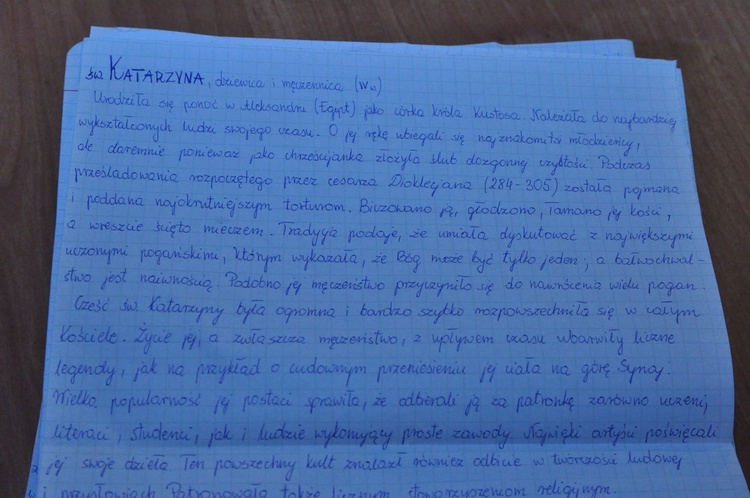 św. KATARZYNA, dziewica i męczennica (W w)
Urodziła się ponoć w Aleksandrii (Egipt) jako córka króla Kustosa. Należała do najbardziej
wykształconych ludzi swojego czasu. O jej rękę ubiegali się najznakomitsi młodzieńcy,
ale daremnie ponieważ jako chrześcijanka złożyła ślub dozgonnej czystości. Podczas
prześladowania rozpoczętego przez cesarza Dioklecjana (284-305) została pojmana
i poddana najokrutniejszym torturom. Biczowano ją, głodzono, łamano jej kości,
a wreszcie ścięto mieczem. Tradycja podaje, że umiała dyskutować z największymi
uczonymi pogańskimi, którym wykazała, że Bóg może być tylko jeden; a bałwochwal-
stwo jest naiwnością. Podobno jej męczeństwo przyczyniło się do nawrócenia wielu pogan.
Cześć św. Katarzyny była ogromna i bardzo szybko rozpowszechniła się w całym
Kościele. Życie jej, a zwłaszcza męczeństwo, z upływem czasu ubarwiły liczne
legendy, jak na przykład o cudownym przeniesieniu jej ciała na górę Synaj.
Wielka popularność jej postaci sprawiła, że odbierali ją za patronkę zarówno uczeni,
literaci, studenci, jak i ludzie wykonujący proste zawody. Najwięksi artyści poświęcali
jej swoje dzieła. Ten powszechny kult znalazł również odbicie w twórczości ludowej
i przysłowiach. Patronowała także licznym stowarzyszeniom religijnym.